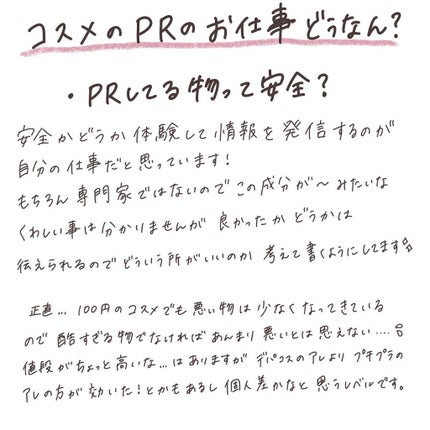 コスメのPRのお仕事どうなん?
・PRしてる物って安全?
安全かどうか体験して情報を発信するのが
自分の仕事だと思っています!
もちろん専門家ではないのでこの成分が〜みたいな
くわしい事は分かりませんが良かったかどうかは
伝えられるのでどういう所がいいのか考えて書くようにしてます
正直...100円のコスメでも悪い物は少なくなってきている
ので酷すぎる物でなければあんまり悪いとは思えない....
値段がちょっと高いな...はありますがデパコスのアレよりプチプラの
アレの方が効いた!とかもあるし個人差かなと思うレベルです。